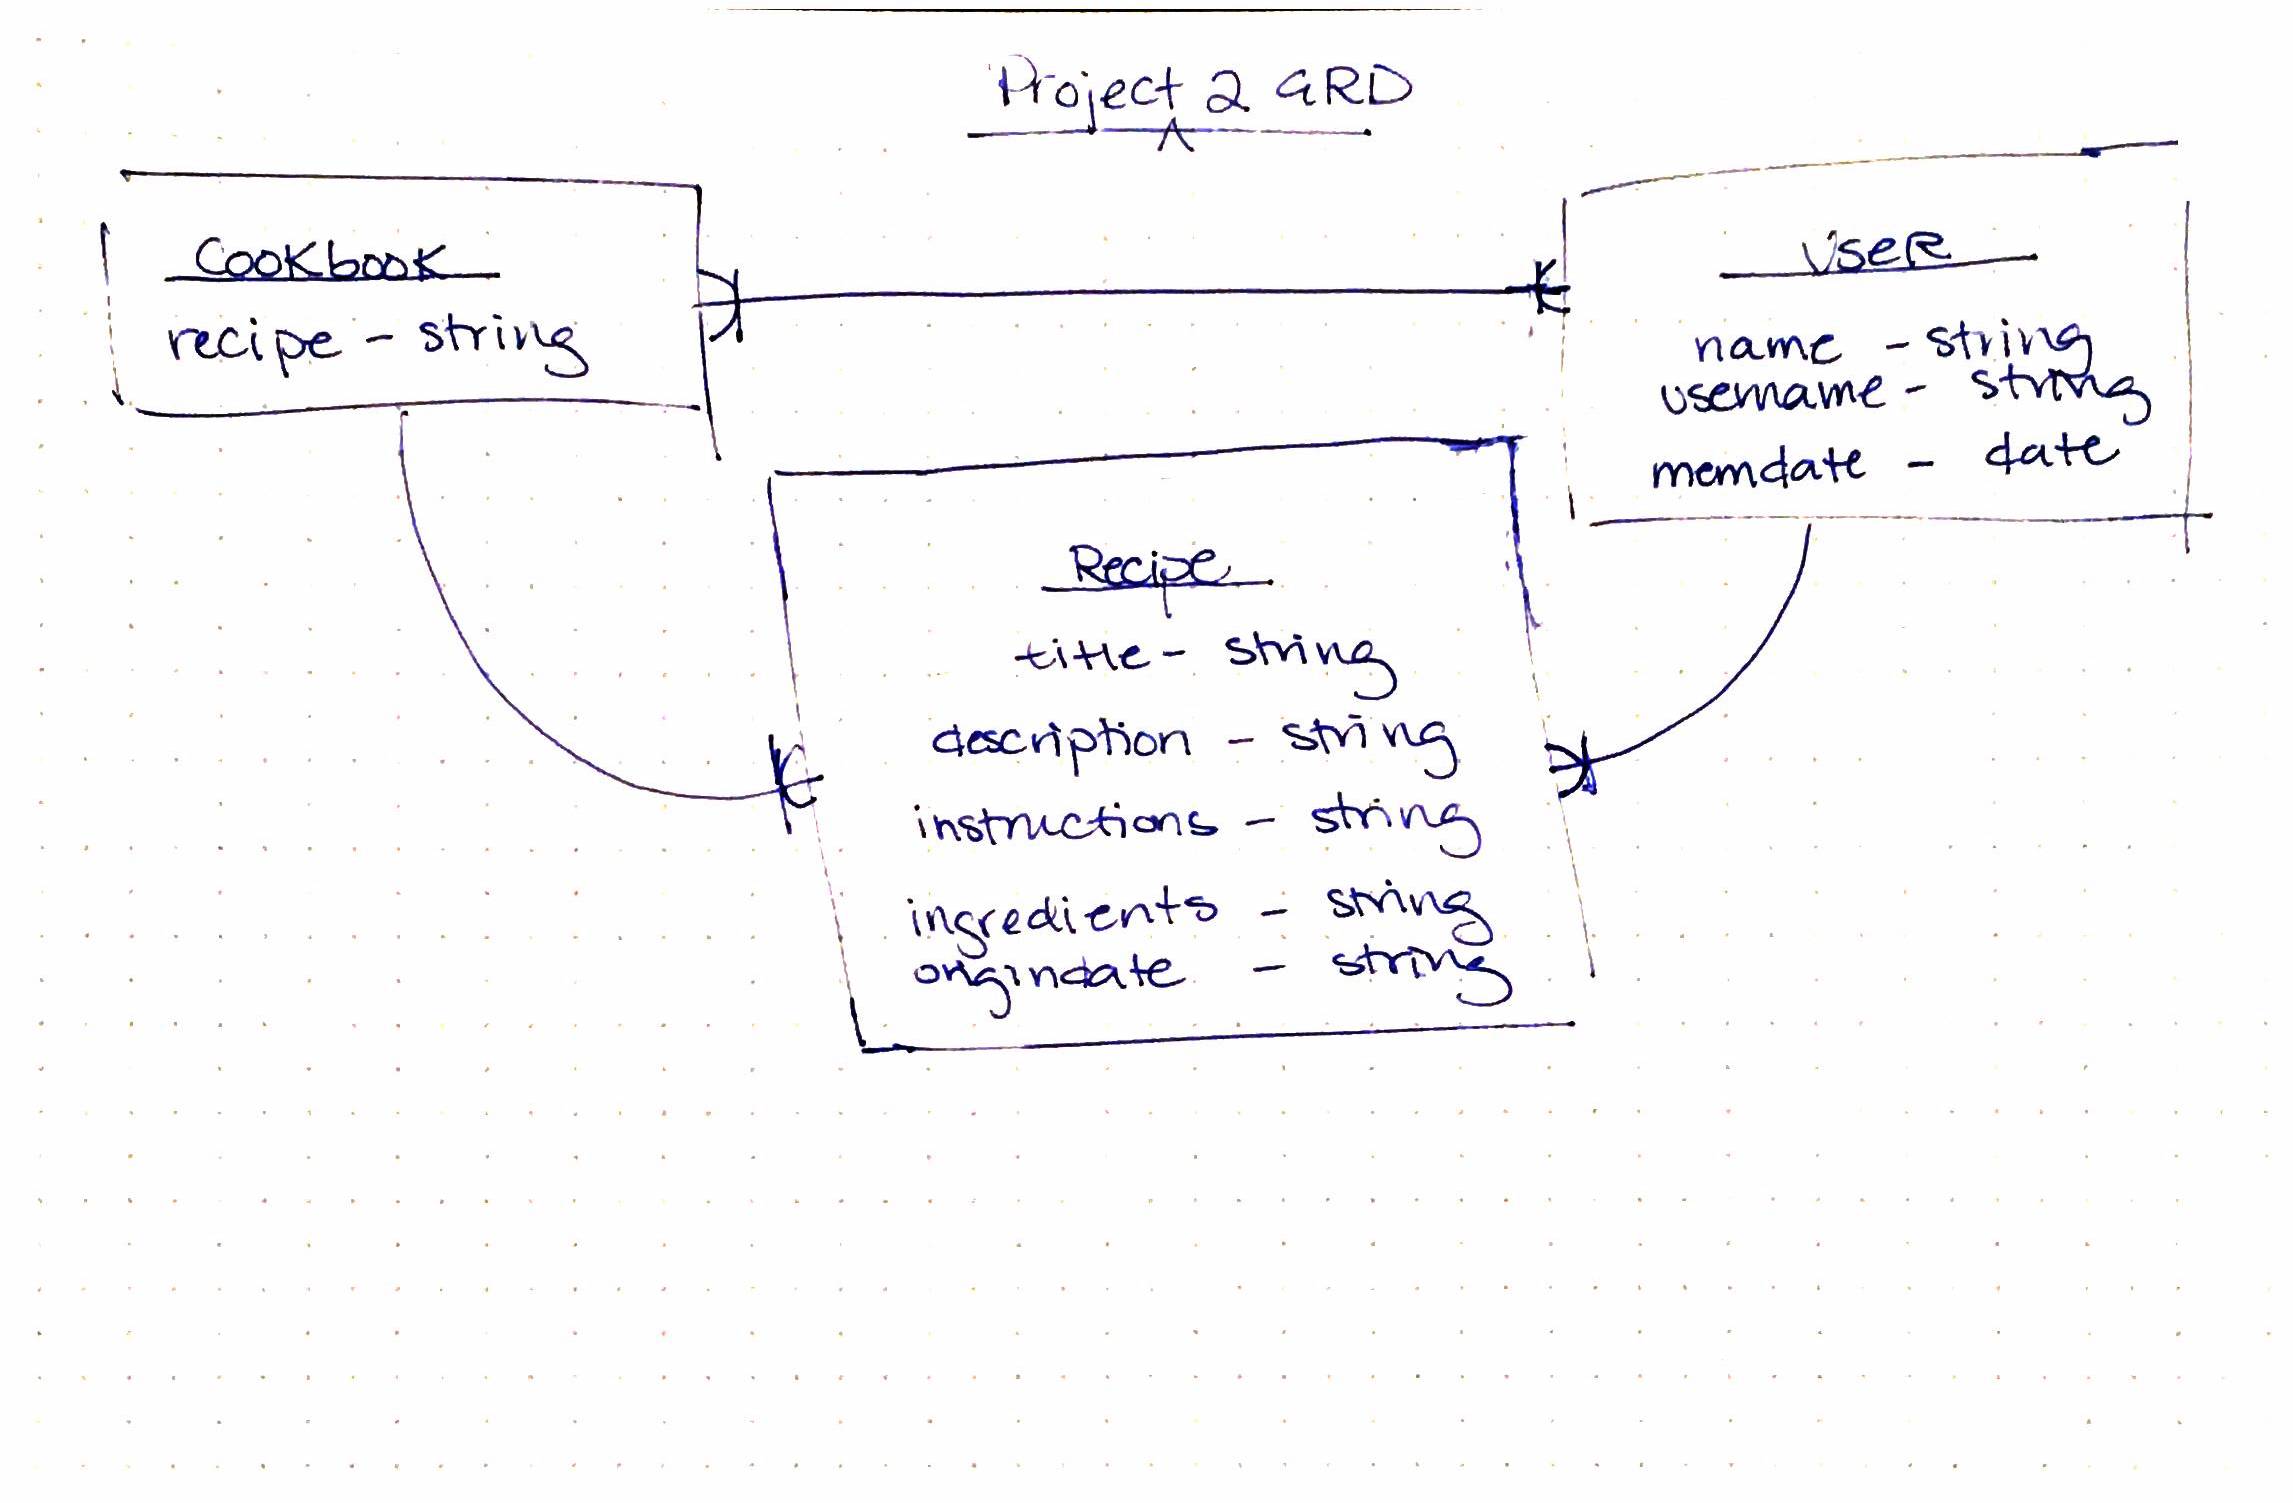 Project 2 ERD
Cookbook
recipe - string
User
name - string
username - string
memdate - date
Recipe
title - string
description - string
instructions - string
ingredients - string
origindate - string